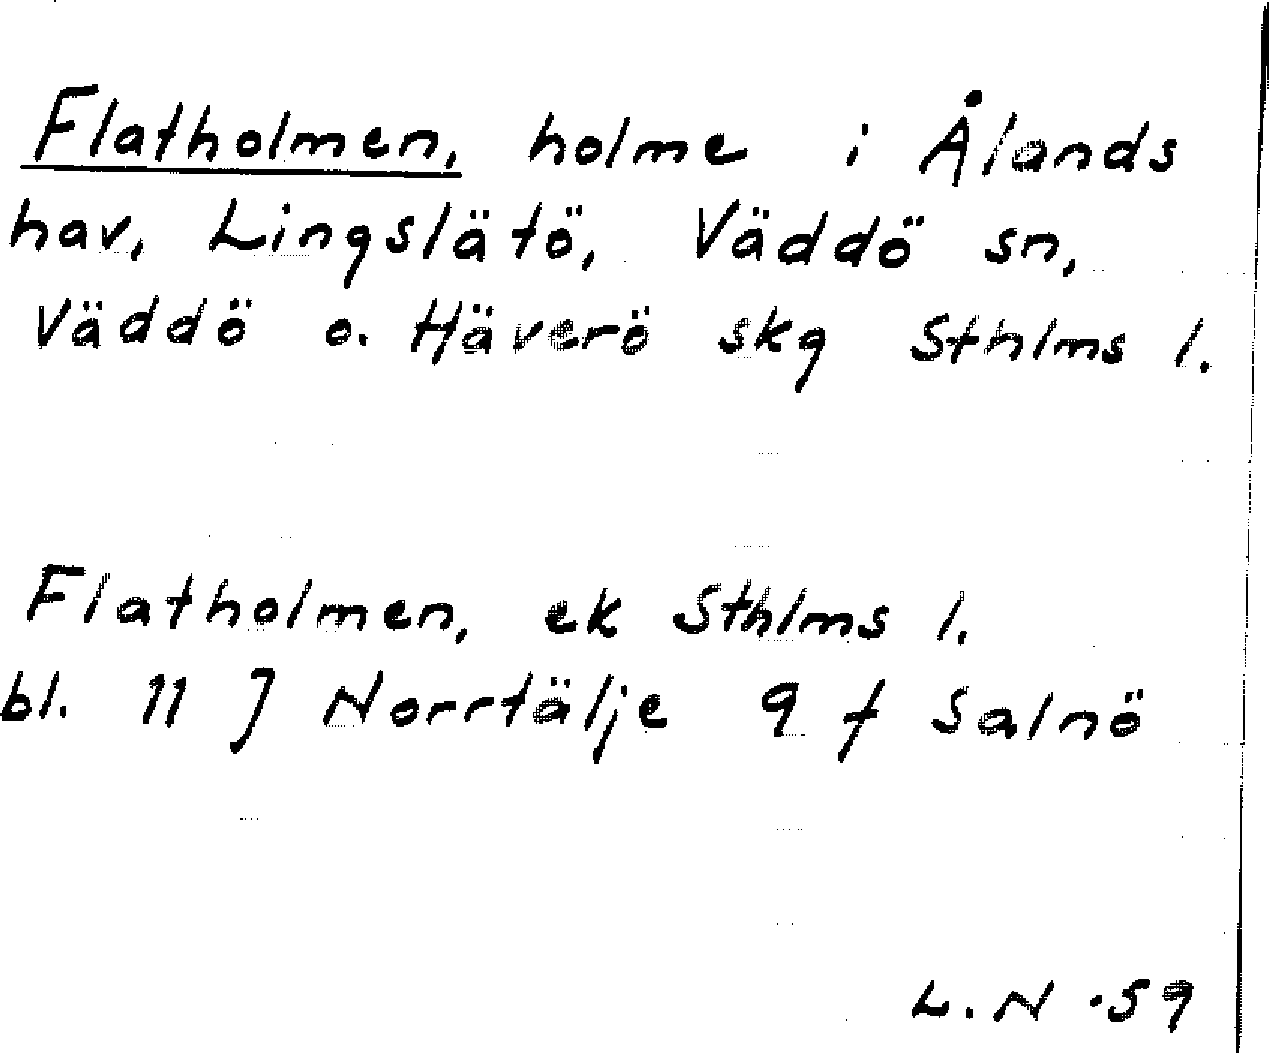 Flatholmen, holme i Ålands
hav, Lingslätö, Väddö sn,
Väddö o. Häverö skg Sthlms l.
Flatholmen, ek Sthlms l.
bl. 11 J Norrtälje 9 f Salnö
L. N -59